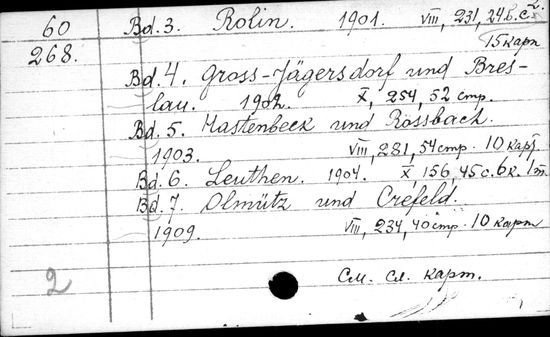 60 Bd. 3. Kolin. 1901. VIII, 231, 24 б. с.
268. 15 карт
Bd. 4. Gross-Jägersdorf und Bres-
lau. 1902. X, 254, 52 стр.
Bd. 5. Hastenbeck und Rossbach.
1903. VIII, 281, 54 стр. 10 карт.
Bd. 6. Leuthen. 1904. X, 156, 45 с. 6 к. 1 пл.
Bd. 7. Olmütz und Crefeld.
1909. VIII, 234, 40 стр. 10 карт
2 См. сл. карт.